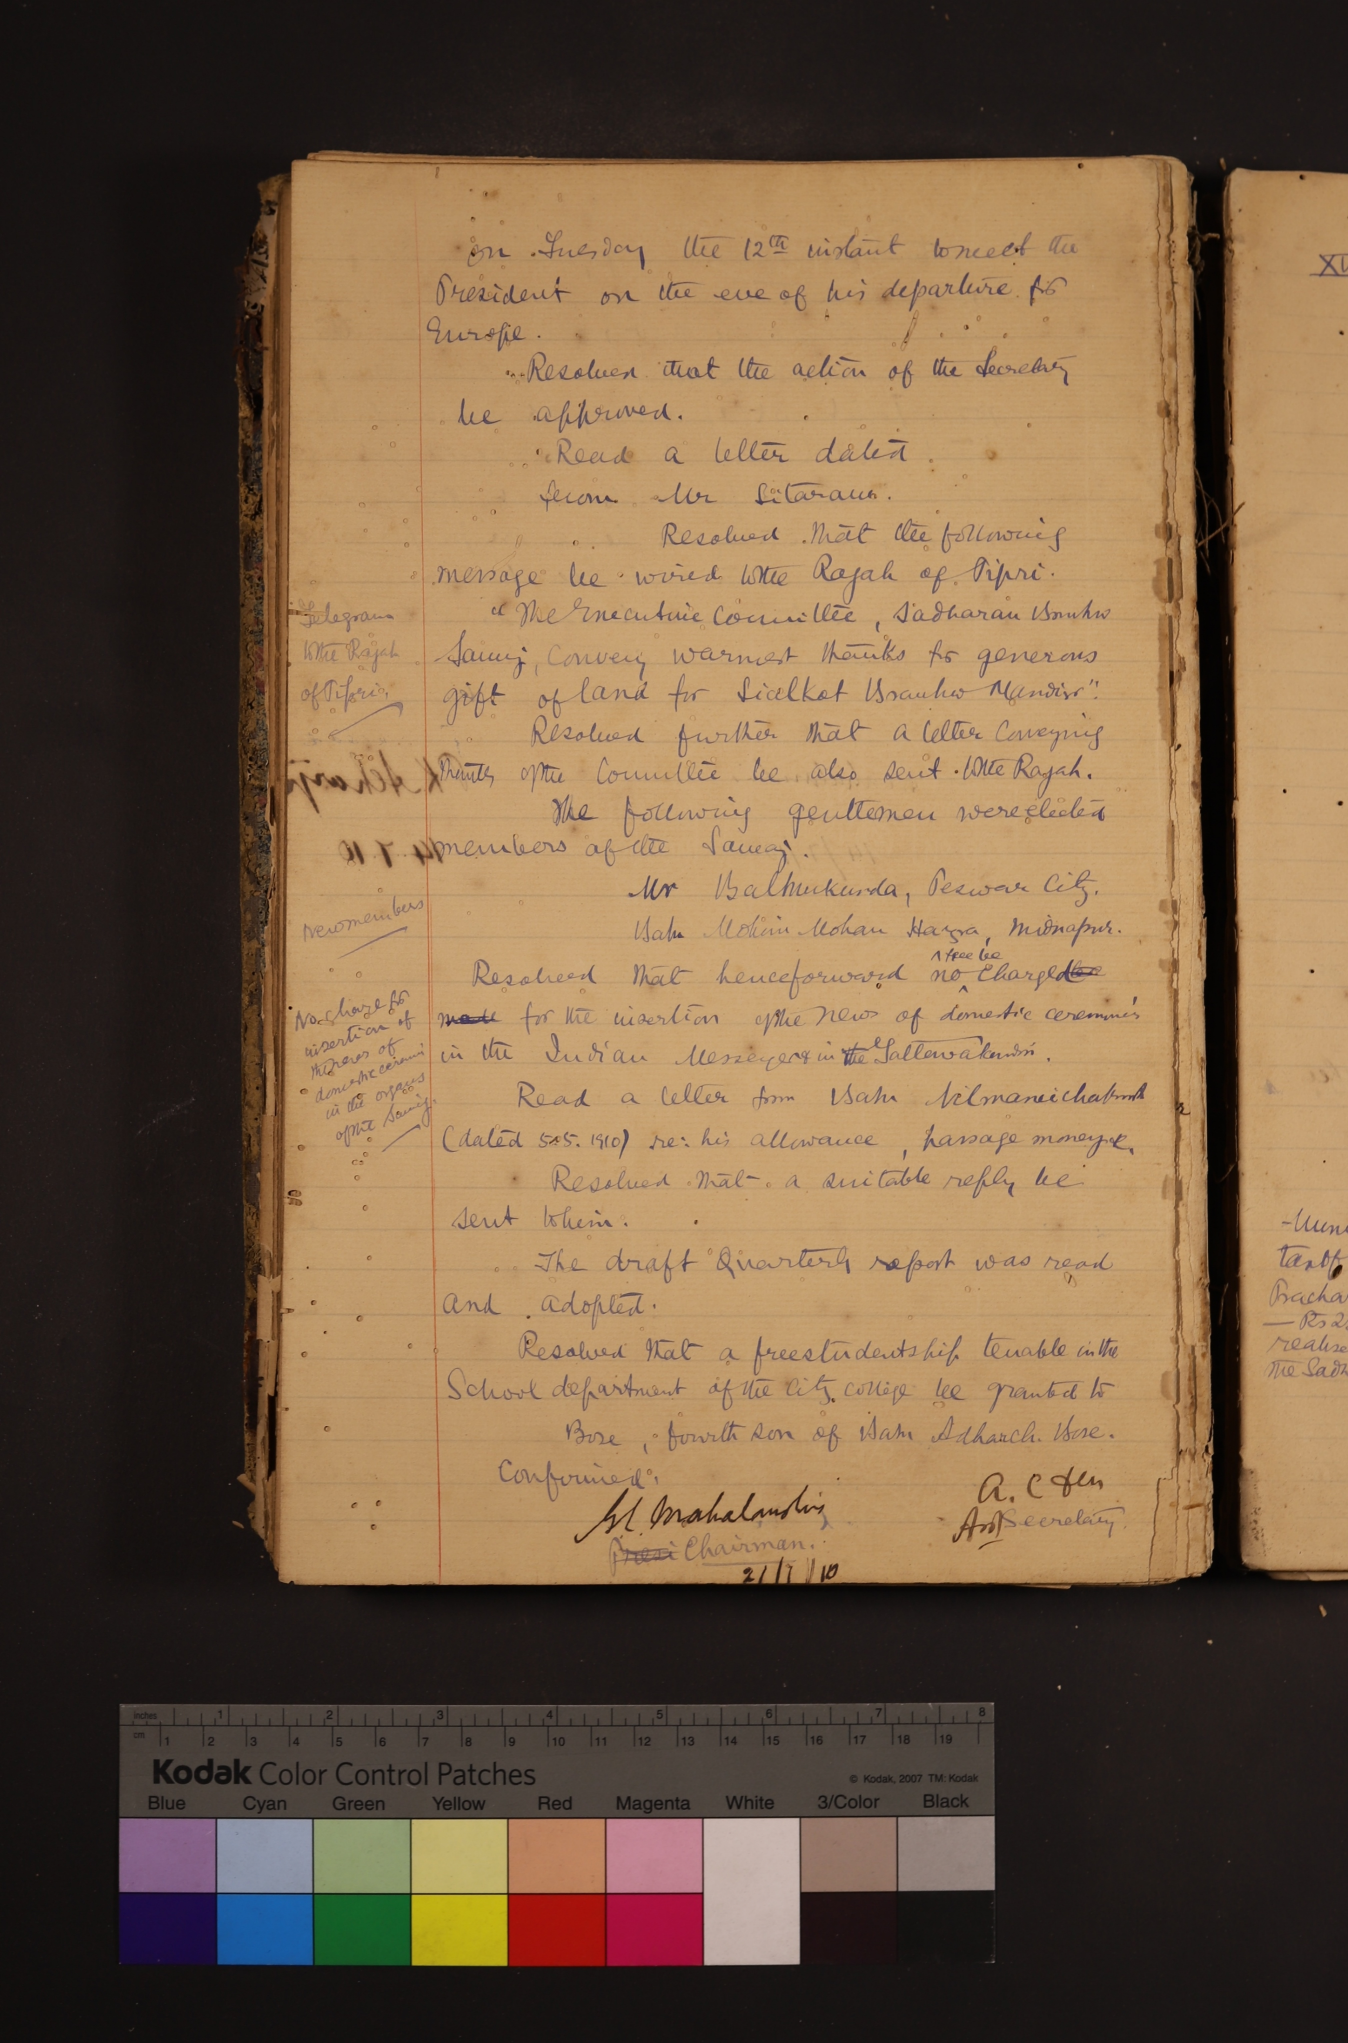 on Tuesday the 12th instant to meet the
President on the eve of his departure for
Europe.
Resolved that the action of the Secretary
be approved.
Read a letter dated
from Mr Sitaram.
Resolved that the following
message be wired to the Rajah of Tipri.
Telegram
to the Rajah
of Tipri.
"The Executive Committee, Sadharan Brahmo
Samaj, convey warmest thanks for generous
gift of land for Sialkot Brahmo Mandir".
Resolved further that a letter conveying
thanks of the Committee be also sent to the Rajah.
The following gentlemen were elected
members of the Samaj.
New members
Mr Balmukunda, Peswar City.
Babu Mohini Mohan Hazra, Midnapur.
No charge for
insertion of
the news of
domestic
in the organs
of the Samaj.
Resolved that henceforward no fee be charged be
made for the insertion of the news of domestic ceremonies
in the Indian Messenger & in the
Read a letter from Babu Nilmani
(dated 5.5.1910) re: his allowance, passage money &.
Resolved that a suitable reply be
sent to him.
The draft Quarterly report was read
and adopted.
Resolved that a freestudentship tenable in the
School department of the City College be granted to
Bose, fourth son of Babu Adhar Ch. Bose.
Confirmed.
A. C Sen
Asst Secretary.
Mahalanobis
Presi Chairman.
21/7/10
XV
Pracha
Rs 2
realise
the Sadh
inches 1 2 3 4 5 6 7 8
cm 1 2 3 4 5 6 7 8 9 10 11 12 13 14 15 16 17 18 19
Kodak Color Control Patches
© Kodak, 2007 TM: Kodak
Blue Cyan Green Yellow Red Magenta White 3/Color Black